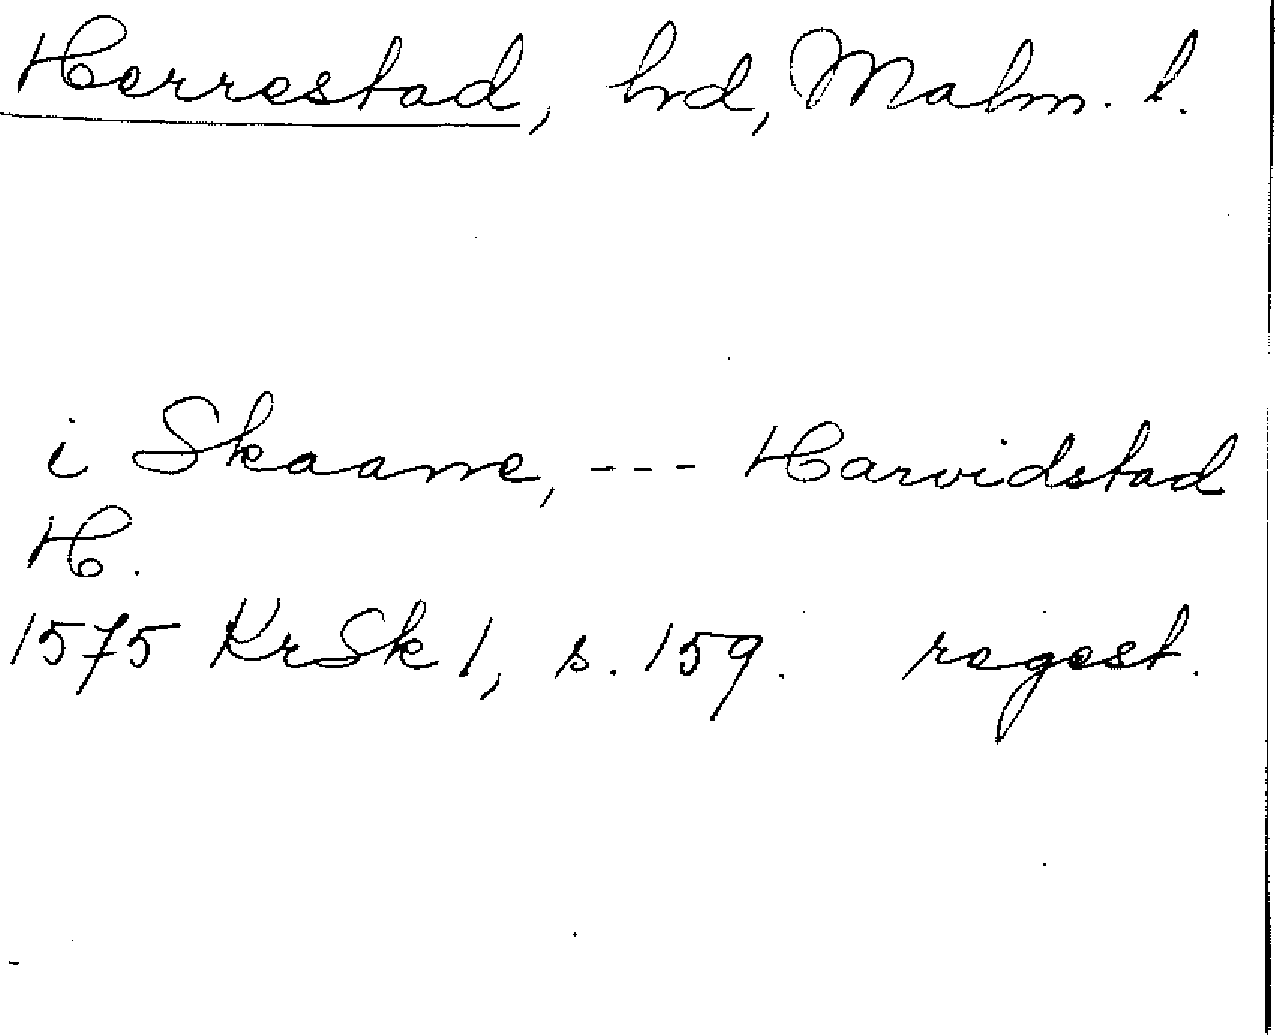 Herrestad, hrd, Malm. l.
i Skaane, --- Harvidstad
H.
1575 KrSk 1, s. 159. regest.